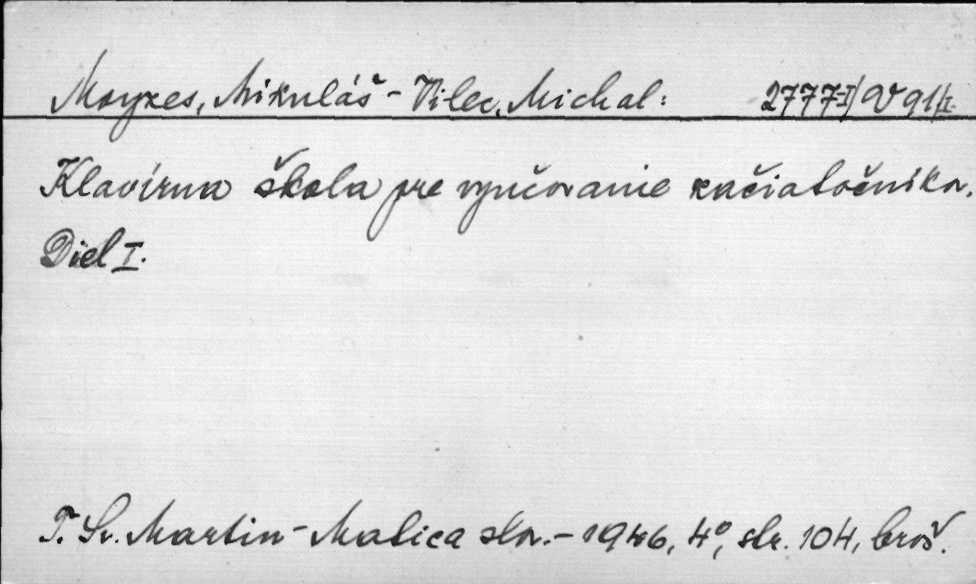 Moyzes, Mikuláš - Vilec, Michal: 2777-I/V 91/I.
Klavírna škola pre vyučovanie začiatočníkov.
Diel I.
T. Sv. Martin - Matica slov. - 1946, 4°, str. 104, brož.